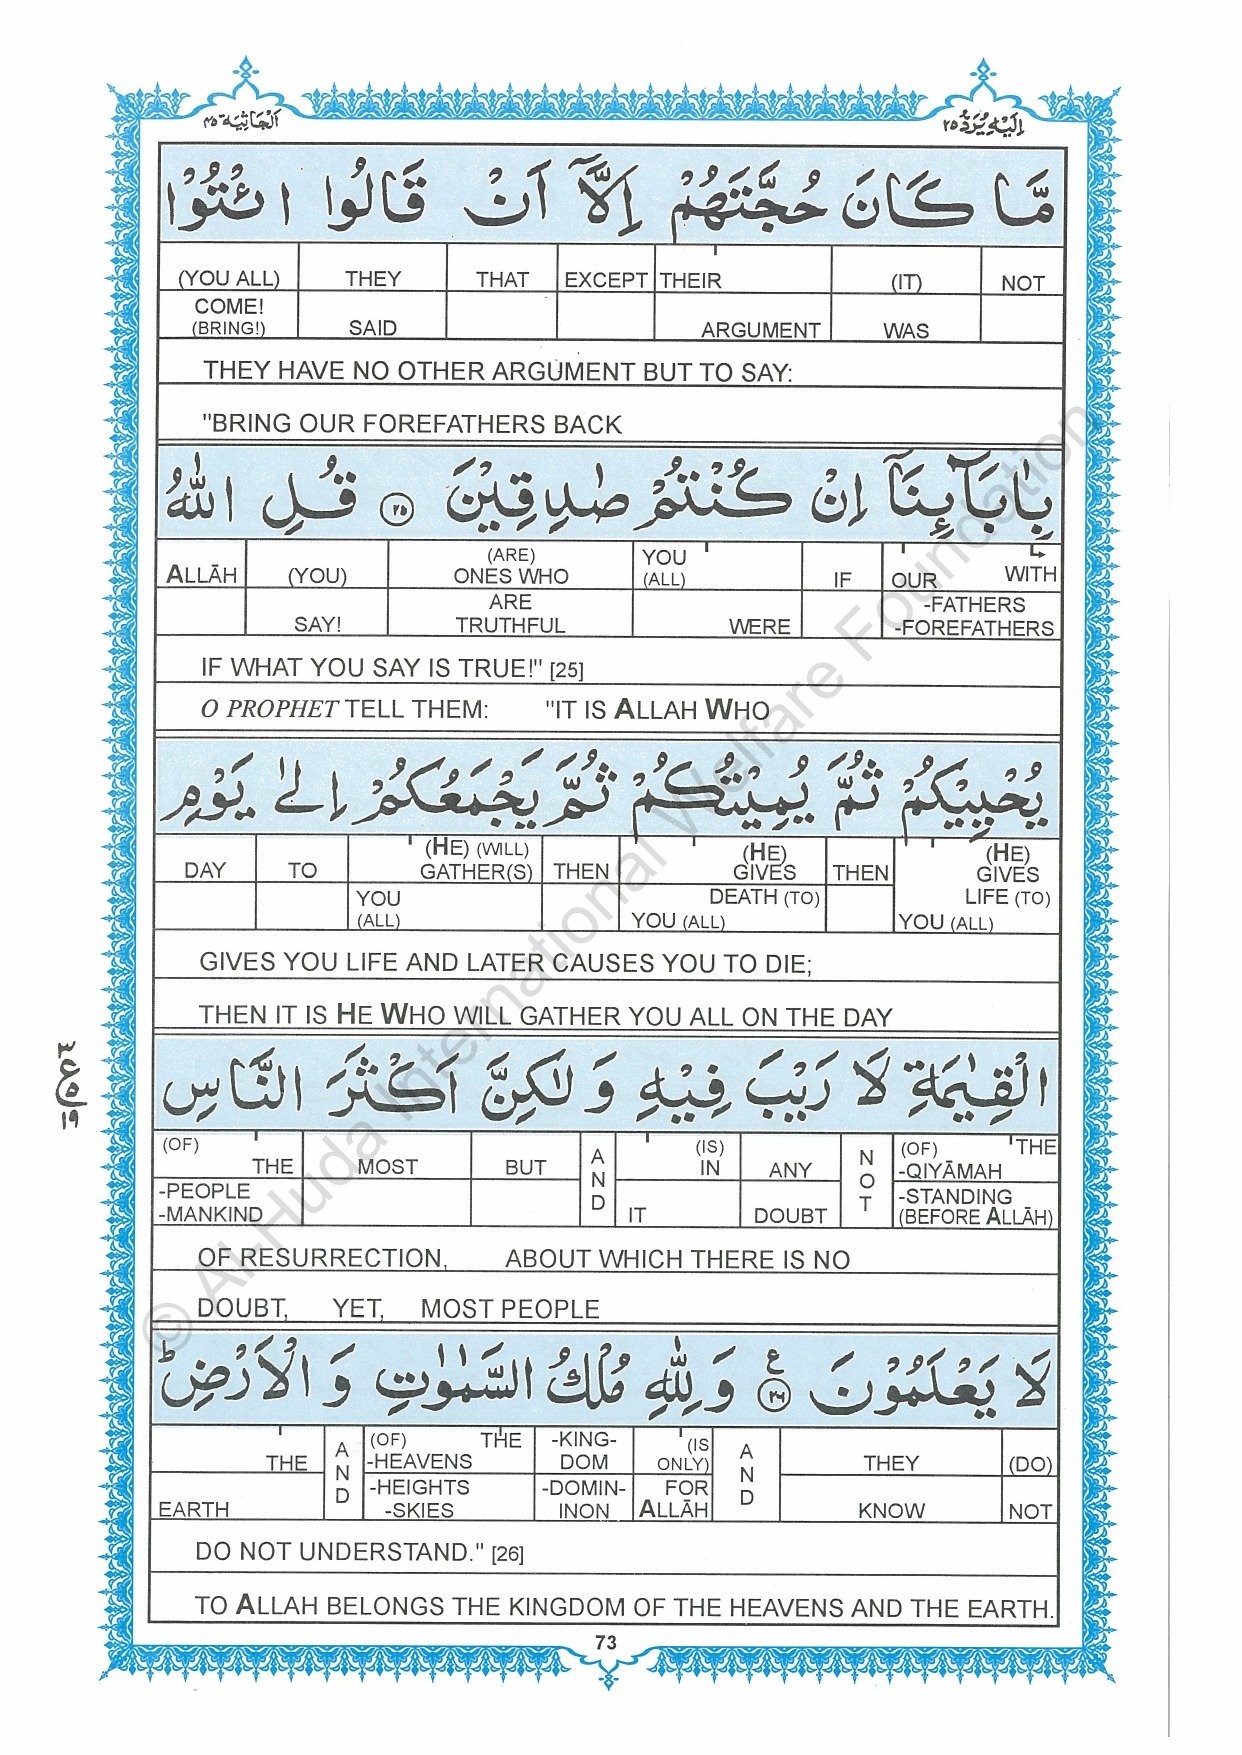 اَلْجَاثِيَة ٤٥
اِلَيْهِ يُرَدُّ ٢٥
مَّا كَانَ حُجَّتَهُمْ اِلَّآ اَنْ قَالُوا ائْتُوْا
(YOU ALL) THEY THAT EXCEPT THEIR (IT) NOT
COME! (BRING!) SAID ARGUMENT WAS
THEY HAVE NO OTHER ARGUMENT BUT TO SAY:
"BRING OUR FOREFATHERS BACK
بِاٰبَآئِنَآ اِنْ كُنْتُمْ صٰدِقِيْنَ ٢٥ قُلِ اللّٰهُ
ALLĀH (YOU) (ARE) ONES WHO YOU (ALL) IF OUR WITH
SAY! ARE TRUTHFUL WERE -FATHERS -FOREFATHERS
IF WHAT YOU SAY IS TRUE!" [25]
O PROPHET TELL THEM: "IT IS ALLAH WHO
يُحْيِيْكُمْ ثُمَّ يُمِيْتُكُمْ ثُمَّ يَجْمَعُكُمْ اِلٰى يَوْمِ
DAY TO (HE) (WILL) GATHER(S) THEN (HE) GIVES THEN (HE) GIVES
YOU (ALL) DEATH (TO) YOU (ALL) LIFE (TO) YOU (ALL)
GIVES YOU LIFE AND LATER CAUSES YOU TO DIE;
THEN IT IS HE WHO WILL GATHER YOU ALL ON THE DAY
الْقِيٰمَةِ لَا رَيْبَ فِيْهِ وَلٰكِنَّ اَكْثَرَ النَّاسِ
(OF) THE MOST BUT AND (IS) IN ANY NOT (OF) THE -QIYĀMAH
-PEOPLE -MANKIND IT DOUBT -STANDING (BEFORE ALLĀH)
OF RESURRECTION, ABOUT WHICH THERE IS NO
DOUBT, YET, MOST PEOPLE
لَا يَعْلَمُوْنَ ٢٦ ع وَلِلّٰهِ مُلْكُ السَّمٰوٰتِ وَالْاَرْضِ ط
THE AND (OF) THE -HEAVENS -KING-DOM (IS ONLY) AND THEY (DO)
EARTH -HEIGHTS -SKIES -DOMIN-INON FOR ALLĀH KNOW NOT
DO NOT UNDERSTAND." [26]
TO ALLAH BELONGS THE KINGDOM OF THE HEAVENS AND THE EARTH.
73
© Al-Huda International Welfare Foundation